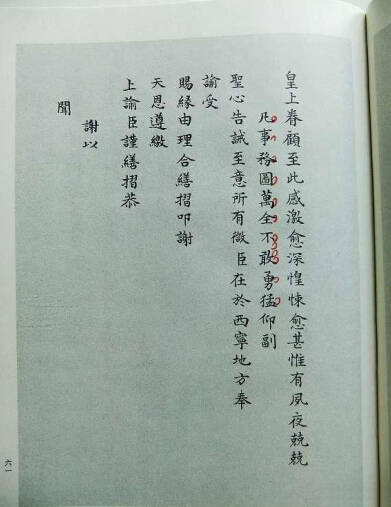 皇上眷顧至此感激愈深惶悚愈甚惟有夙夜兢兢
凡事務圖萬全不敢勇猛仰副
聖心告誡至意所有微臣在於西寧地方奉
諭受
賜緣由理合繕摺叩謝
天恩遵繳
上諭臣謹繕摺恭
謝以
聞
六一